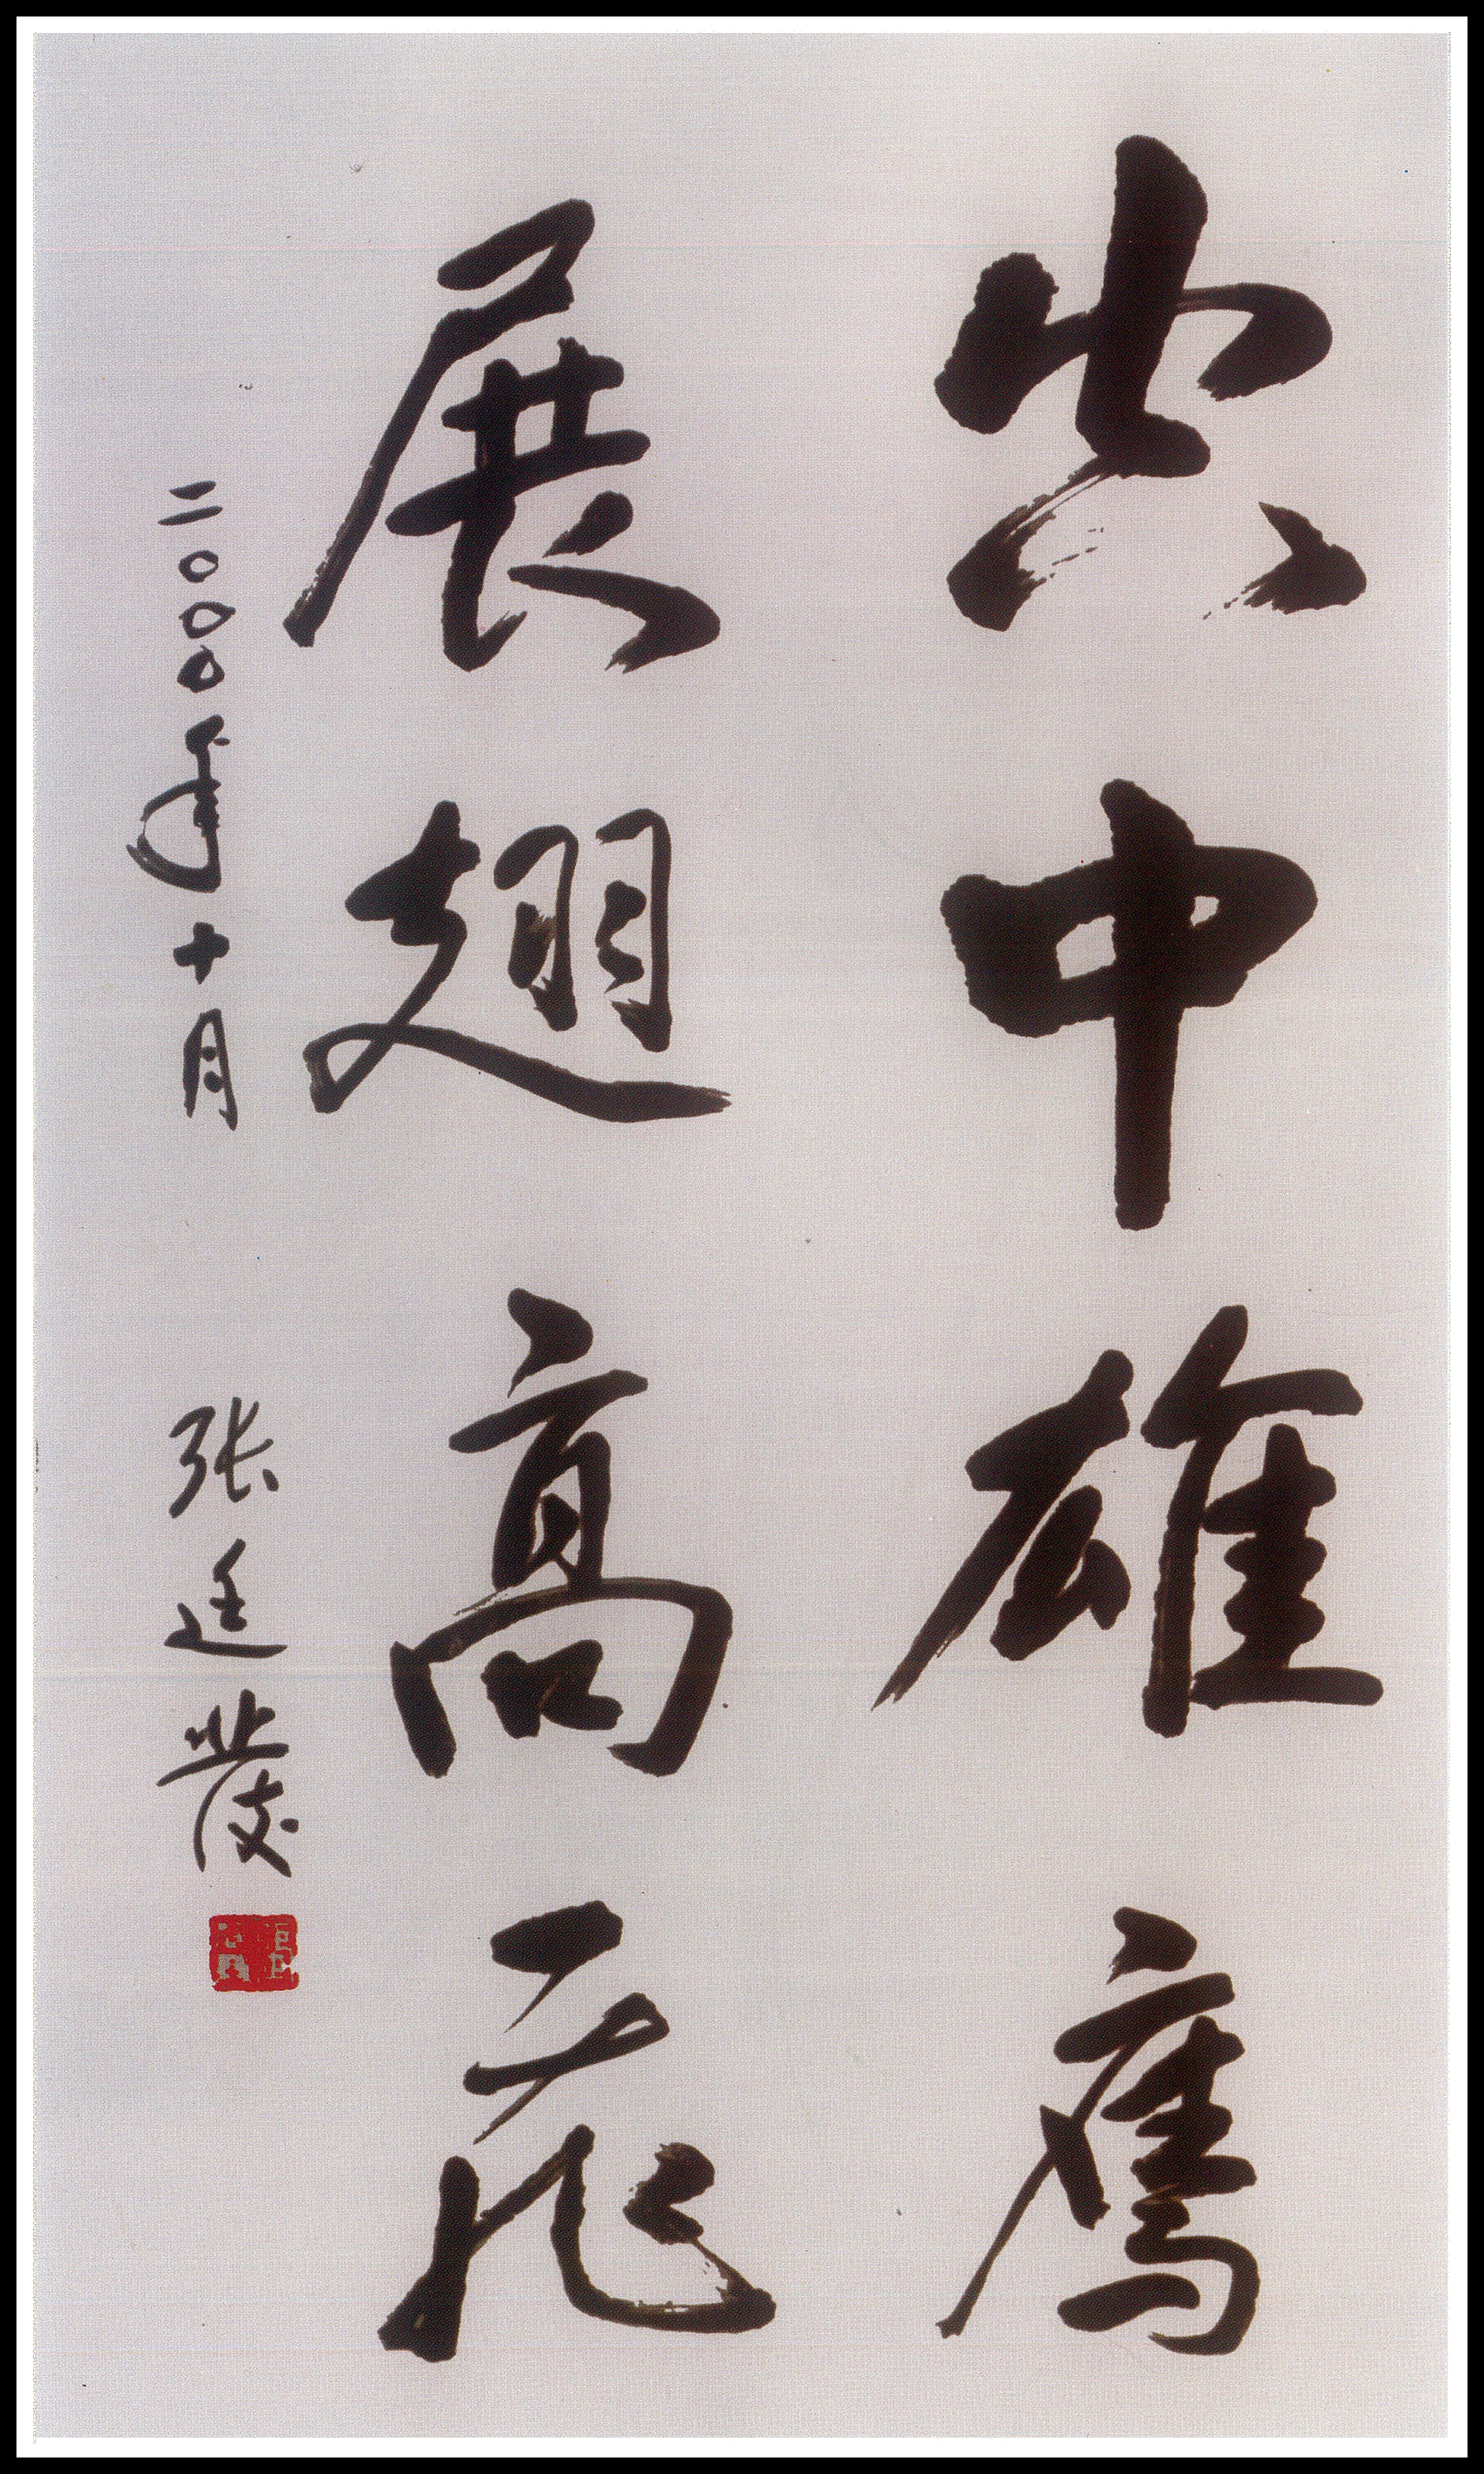 中雄鹰
展翅高飛
二〇〇〇年十月 张廷發